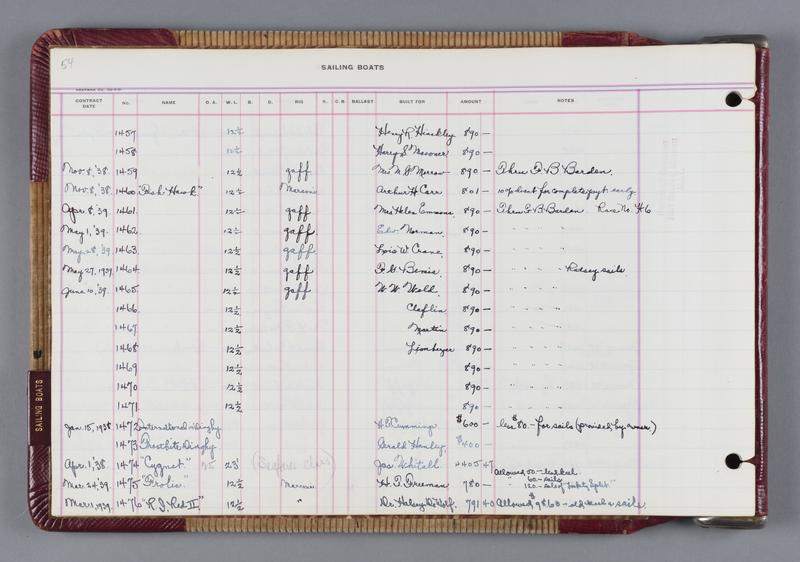 54
SAILING BOATS
CONTRACT DATE NO. NAME O. A. W. L. B. D. RIG K. C. B. BALLAST BUILT FOR AMOUNT NOTES
1457 12½ Henry R. Hinckley 890 —
1458 12½ Harry S. 890 —
Nov. 8, '38. 1459 12½ gaff Mrs. 890 — Thru F. B. Borden.
Nov. 8, '38. 1460 "Fish Hawk" 12½ Marconi Arthur H. Carr 801 — 10% disct for complete pyt. early
Apr. 8, '39. 1461 12½ gaff Mrs Helen Emmons 890 — Thru F. B. Borden Race No. H6
May 1, '39. 1462 12½ gaff Edw. Norman 890 — " " " "
May 28, '39. 1463 12½ gaff Lois W. Crane 890 — " " " "
May 27, 1939 1464 12½ gaff F. G. Bemis 890 — " " " " Ratsey sails
June 10, '39. 1465 12½ gaff W. W. 890 — " " " "
1466 12½ Claflin 890 — " " " "
1467 12½ Martin 890 — " " " "
1468 12½ 890 — " " " "
1469 12½ 890 — " " " "
1470 12½ 890 — " " " "
1471 12½ 890 — " " " "
Jan. 15, 1938 1472 International Dinghy H. Cummings $600 — less $80. — for sails (provided by owner)
1473 Frostbite Dinghy Gerald Henley $400 —
Apr. 1 '38. 1474 "Cygnet" 23' Jas. 4405 47 Allowed 50 —
" 60 — sails
Mar. 24 '39. 1475 "Frolic" 12½ Marconi H. T. Freeman 780 — 120 —
Mar. 1, 1939. 1476 "R. J. Red II" 12½ " Dr. Halsey DeWolf 791 40 Allowed $98.60 — old sails
SAILING BOATS